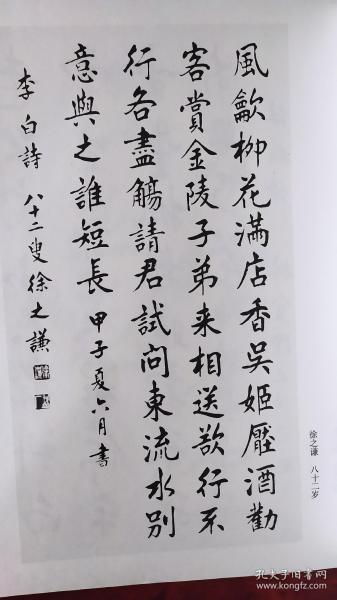 風龡柳花滿店香吳姬壓酒勸
客賞金陵子弟来相送欲行不
行各盡觴請君試問東流水别
意與之誰短長 甲子夏六月書
李白詩 八十二叟徐之謙
徐之谦 八十二岁
孔夫子旧书网